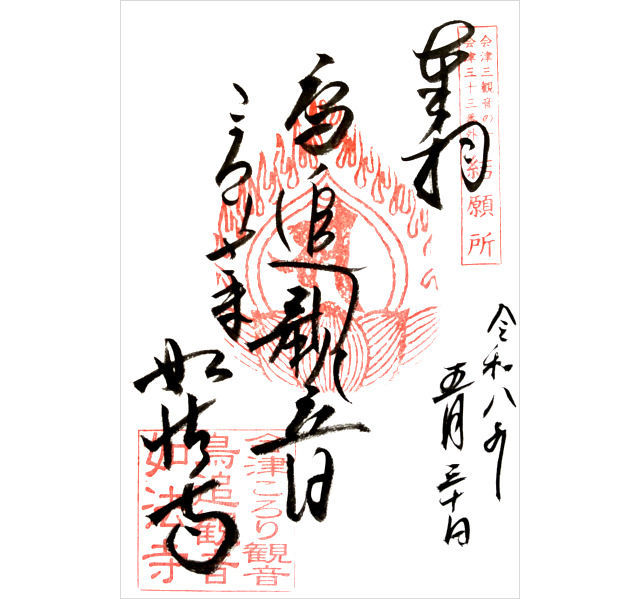 会津三観音の
会津三十三番外
結願所
奉拝
令和八年
五月三十日
鳥追観音
ころり
如法寺
会津ころり観音
鳥追観音
如法寺